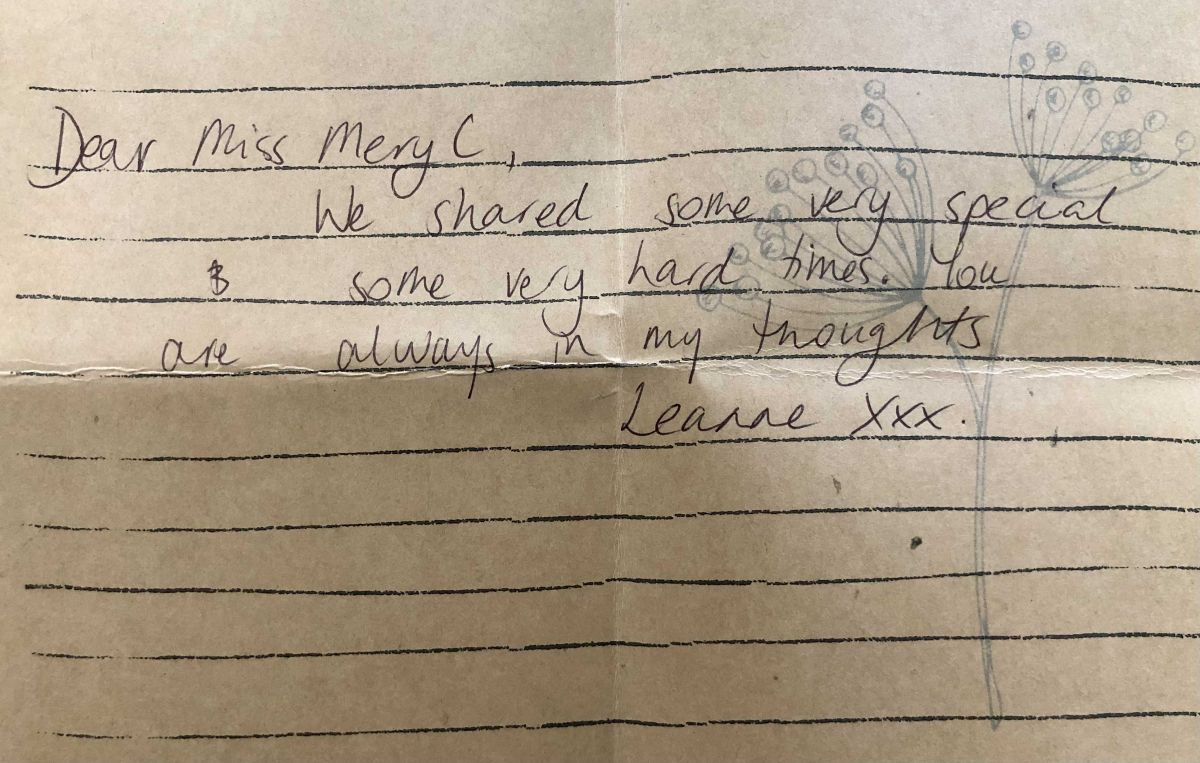 Dear Miss Mery C,
We shared some very special
& some very hard times. You
are always in my thoughts
Leanne xxx.